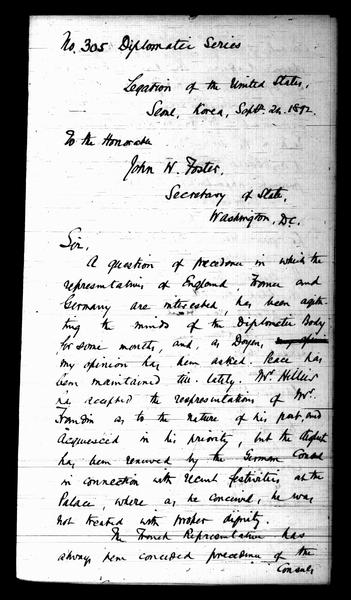 No. 305 Diplomatic Series
Legation of the United States,
Seoul, Korea, Sept. 24, 1892.
To the Honorable
John W. Foster,
Secretary of State,
Washington, D.C.
Sir,
A question of precedence in which the
representatives of England, France and
Germany are interested, has been agita-
ting the minds of the Diplomatic Body
for some months, and, as Doyen,
my opinion has been asked. Peace has
been maintained till lately. Mr. Hillier
accepted the representations of Mr.
Frandin as to the nature of his post, and
acquiesced in his priority, but the dispute
has been renewed by the German Consul
in connection with recent festivities at the
Palace, where as he conceived, he was
not treated with proper dignity.
The French Representative has
always been conceded precedence of the
Consuls